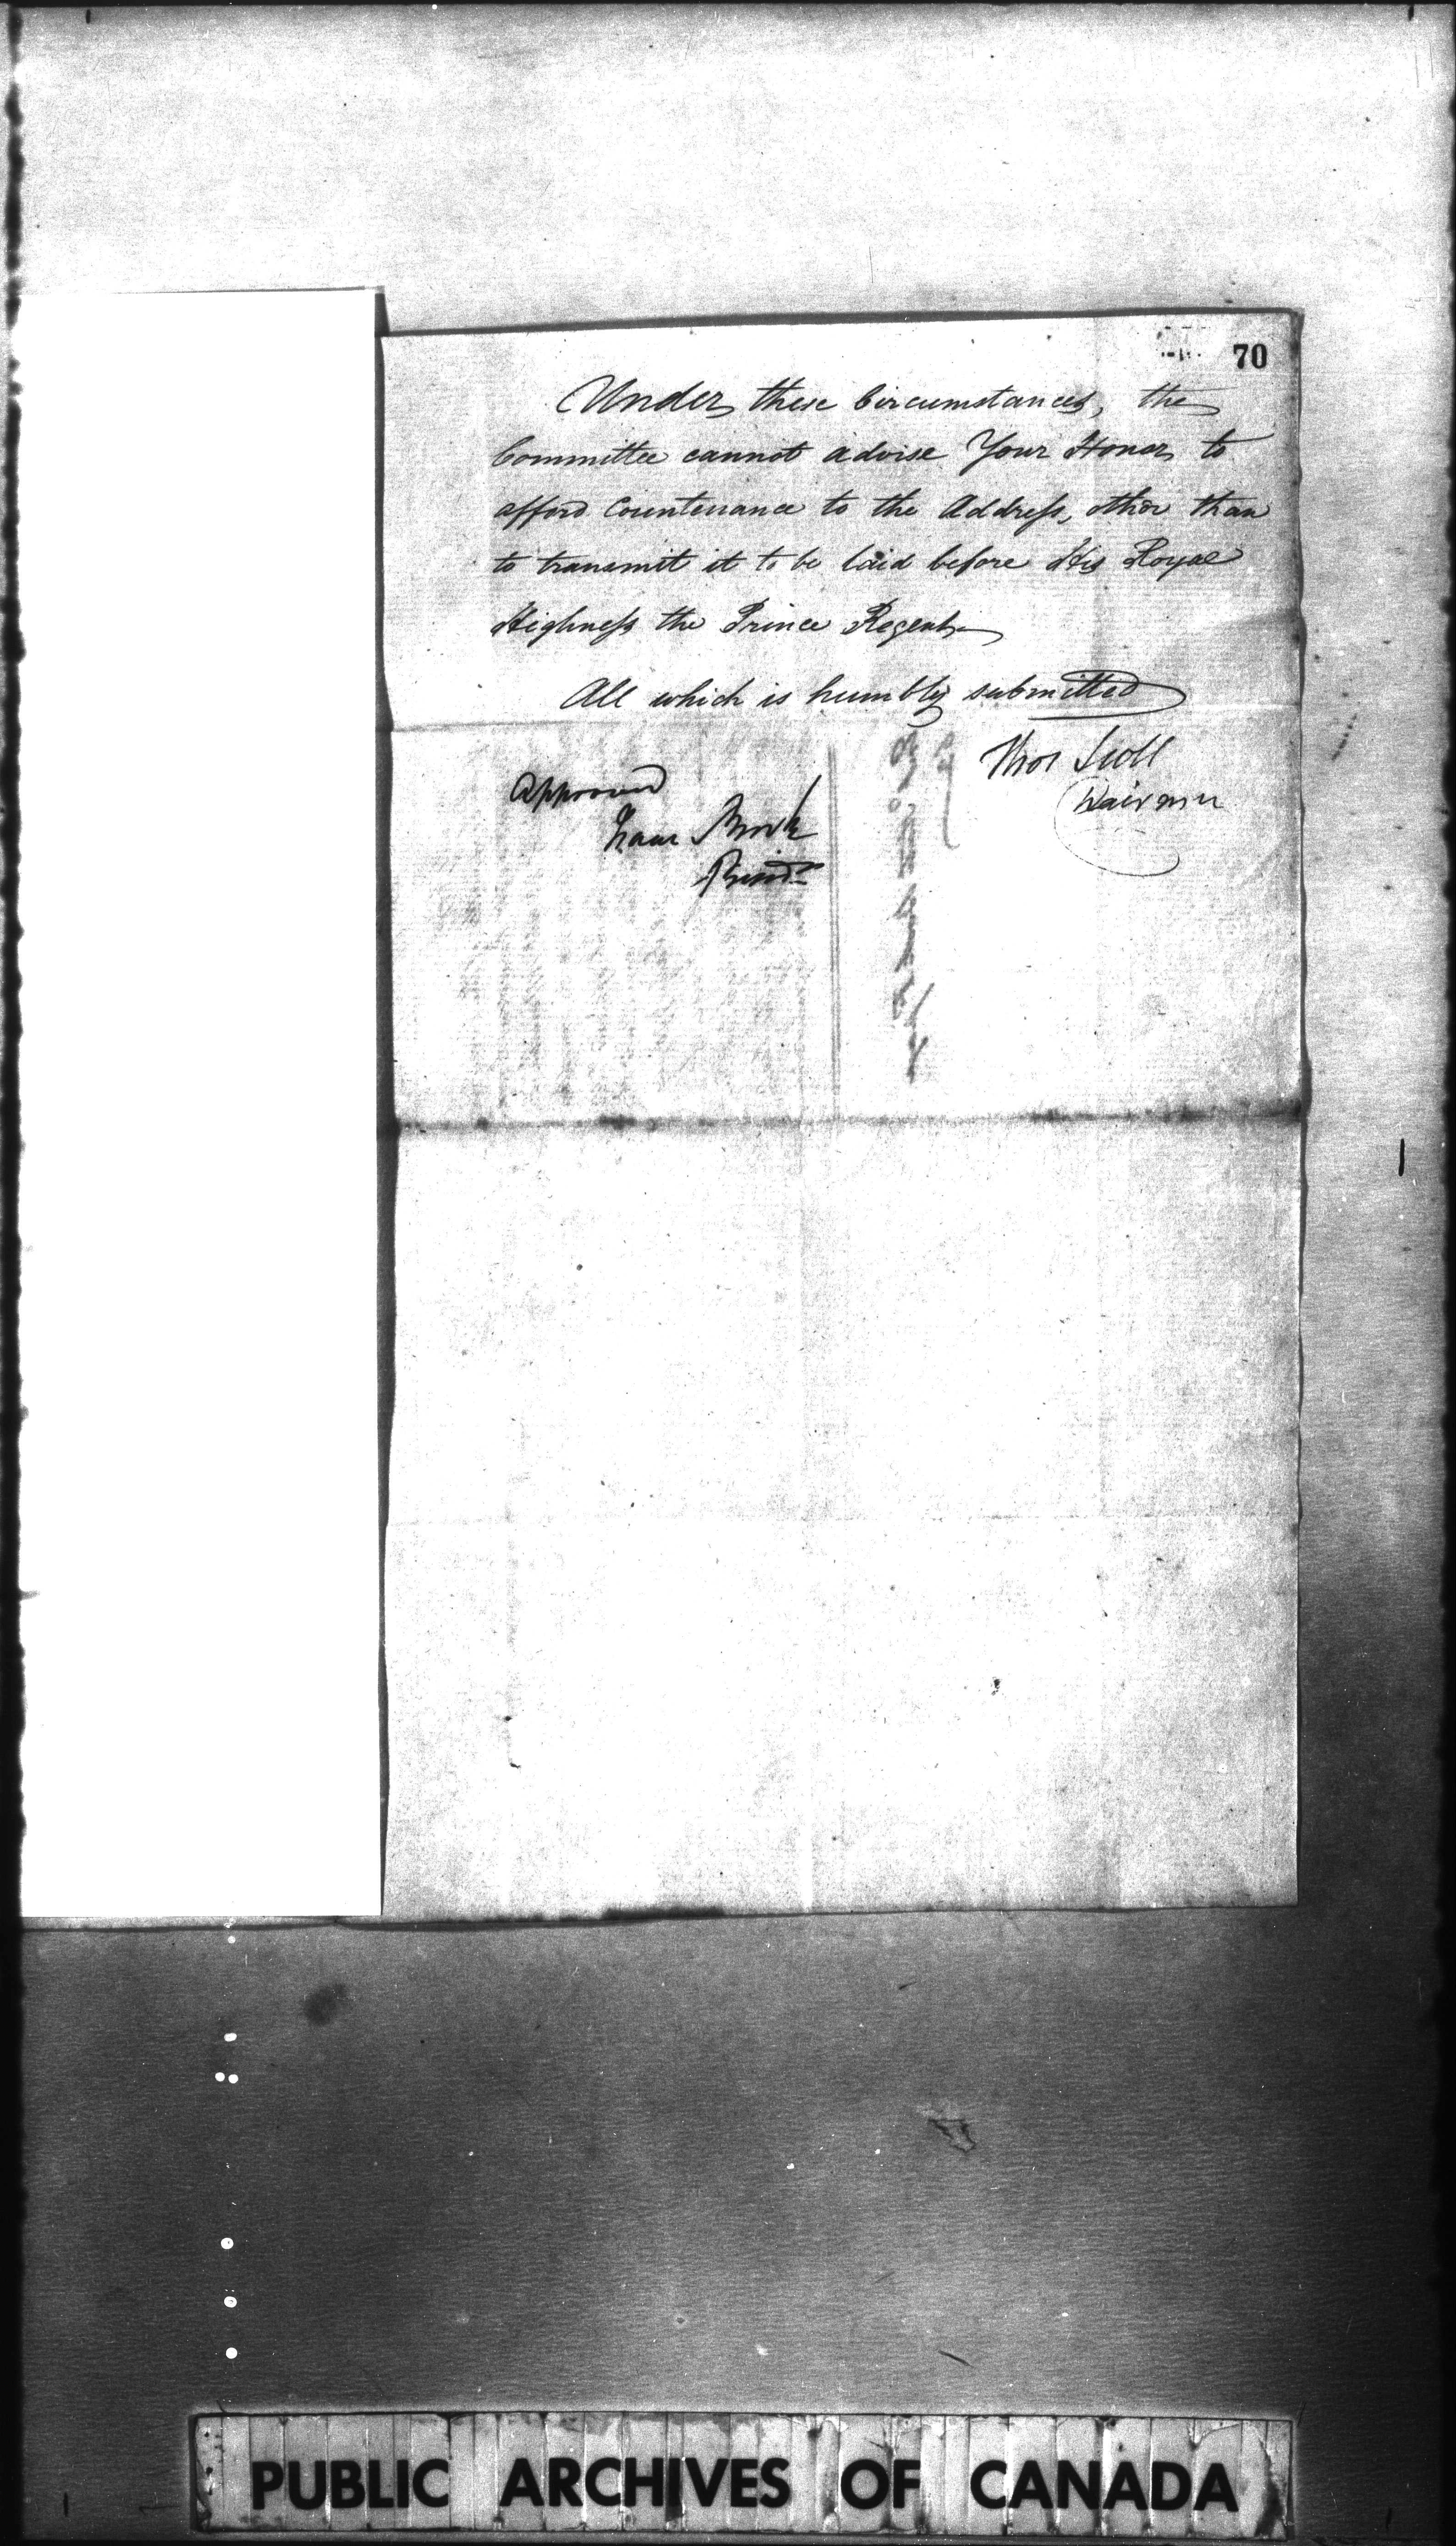 70
Under these Circumstances, the
Committee cannot advise Your Honor to
afford Countenance to the Address, other than
to transmit it to be laid before His Royal
Highness the Prince Regent
All which is humbly submitted
Thos Scott
Chairman
Approved
Isaac Brock
Presidt
PUBLIC ARCHIVES OF CANADA